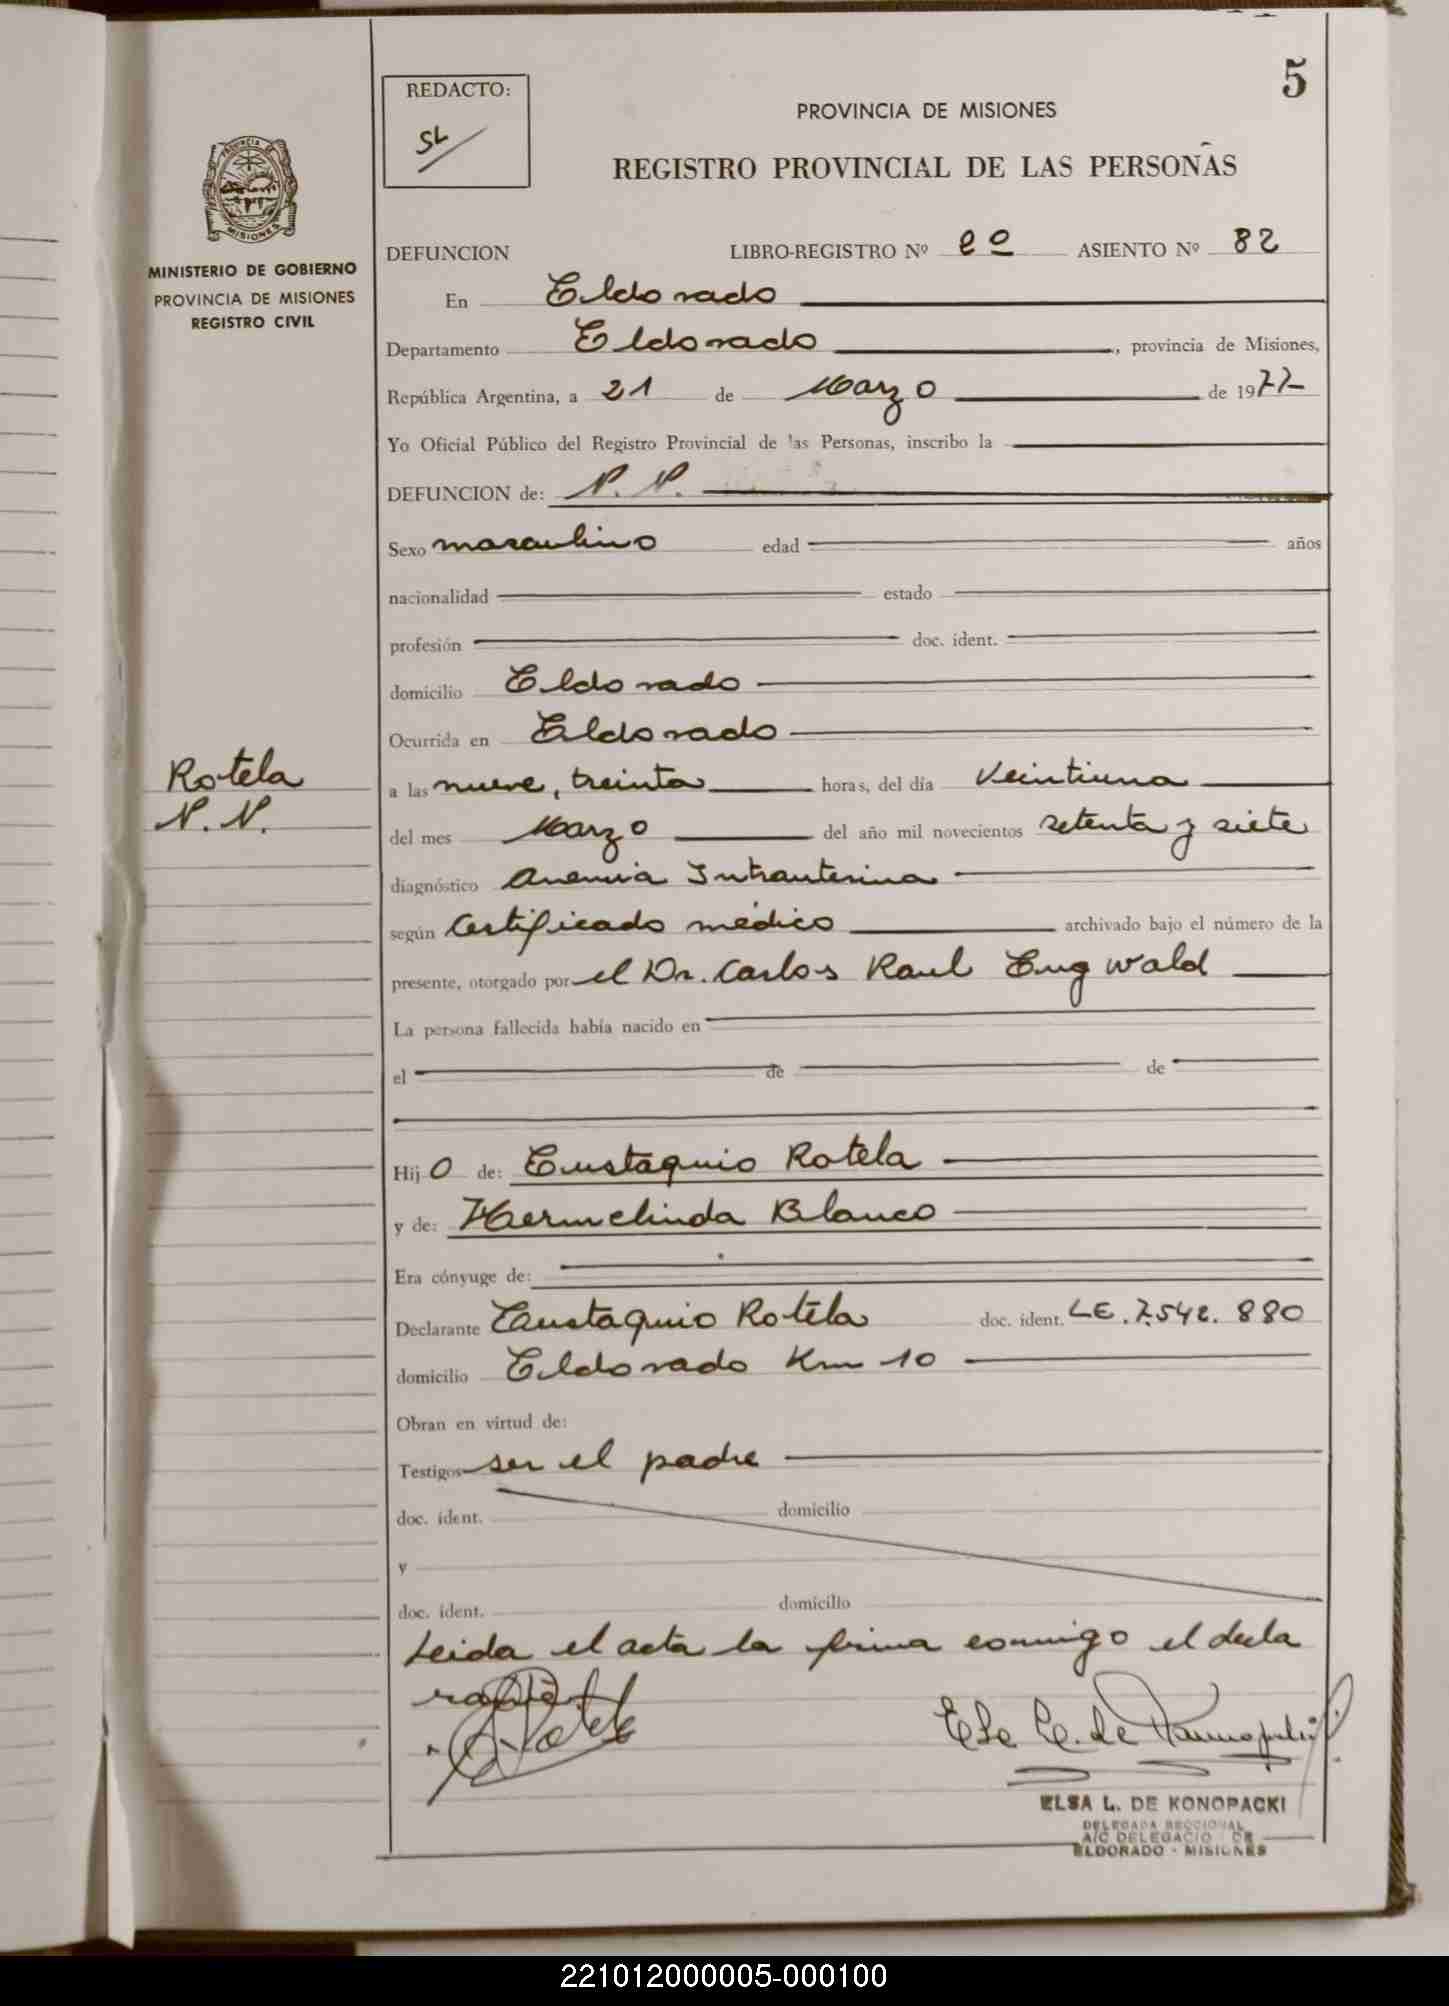 5
REDACTO:
SL
PROVINCIA DE MISIONES
REGISTRO PROVINCIAL DE LAS PERSONAS
PROVINCIA DE
MISIONES
MINISTERIO DE GOBIERNO
PROVINCIA DE MISIONES
REGISTRO CIVIL
DEFUNCION LIBRO-REGISTRO Nº 2º ASIENTO Nº 82
En Eldorado
Departamento Eldorado, provincia de Misiones,
República Argentina, a 21 de Marzo de 1977
Yo Oficial Público del Registro Provincial de las Personas, inscribo la
DEFUNCION de: N. N.
Sexo masculino edad años
nacionalidad estado
profesión doc. ident.
domicilio Eldorado
Ocurrida en Eldorado
Rotela
N. N.
a las nueve, treinta horas, del día veintiuno
del mes Marzo del año mil novecientos setenta y siete
diagnóstico Anemia Intrauterina
según Certificado médico archivado bajo el número de la
presente, otorgado por el Dr. Carlos Raul Eugwald
La persona fallecida había nacido en
el de de
Hijo de: Eustaquio Rotela
y de: Hermelinda Blanco
Era cónyuge de:
Declarante Eustaquio Rotela doc. ident. LE. 7.542.880
domicilio Eldorado Km 10
Obran en virtud de:
Testigos ser el padre
doc. ident. domicilio
y
doc. ident. domicilio
Leida el acta la firma conmigo el decla
rante
ELSA L. DE KONOPACKI
DELEGADA SECCIONAL
A/C DELEGACIO DE
ELDORADO - MISIONES
221012000005-000100